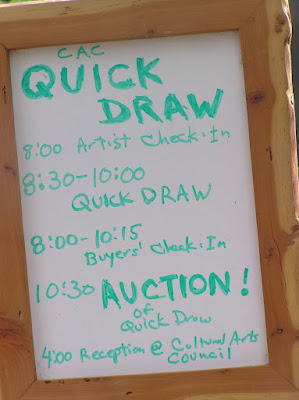 CAC
QUICK
DRAW
8:00 Artist Check-In
8:30-10:00
QUICK DRAW
8:00-10:15
Buyers' Check-In
10:30 AUCTION!
of
Quick Draw
4:00 Reception @ Cultural Arts
Council